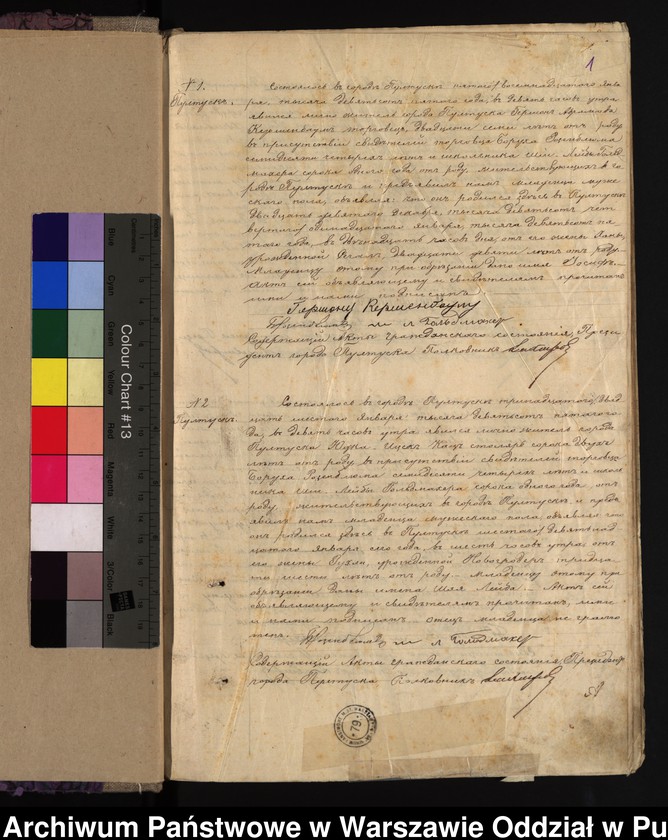 1
№ 1.
Пултускъ.
Состоялось въ городѣ Пултускѣ пятого/восемнадцатого Янва-
ря, тысяча девятьсотъ пятого года, въ девять часовъ утра
явился лично житель города Пултуска Гершонъ
торговецъ, двадцати семи лѣтъ отъ роду
въ присутствіи свидѣтелей торговца Боруха Розенблюма
семидесяти четырехъ лѣтъ и школьника Шіи Лейбы Гольд-
махера сорока одного года отъ роду, жительствующихъ въ го-
родѣ Пултускѣ и предъявилъ намъ младенца муже-
скаго пола, объявляя что онъ родился здѣсь въ Пултускѣ
двадцать девятого Декабря, тысяча девятьсотъ чет-
вертого/одиннадцатого января, тысяча девятьсотъ пя-
того года, въ двѣнадцать часовъ дня, отъ его жены
урожденной двадцати девяти лѣтъ отъ роду.
Младенцу этому при обрѣзаніи дано имя Іосифъ.
Актъ сей объявляющему и свидѣтелямъ прочитанъ
ими и нами подписанъ.
Гершонъ Киршенбаумъ
Розенблюмъ ш л Гольдмахеръ
Содержащій Акты гражданскаго состоянія, Прези-
дентъ города Пултуска Полковникъ
№ 2
Пултускъ.
Состоялось въ городѣ Пултускѣ тринадцатого/двад-
цать шестого Января тысяча девятьсотъ пятого го-
да, въ девять часовъ утра явился лично житель города
Пултуска Ицекъ Кацъ столяръ сорока двухъ
лѣтъ отъ роду въ присутствіи свидѣтелей торговца
Боруха Розенблюма семидесяти четырехъ лѣтъ и школь-
ника Шіи Лейбы Гольдмахера сорока одного года отъ
роду, жительствующихъ въ городѣ Пултускѣ и предъ-
явилъ намъ младенца мужескаго пола, объявляя что
онъ родился здѣсь въ Пултускѣ шестого/девятнад-
цатого Января, сего года, въ шесть часовъ утра, отъ
его жены урожденной Новогродеръ, тридца-
ти шести лѣтъ отъ роду. Младенцу этому при
обрѣзаніи даны имена Шая Лейба. Актъ сей
объявляющему и свидѣтелямъ прочитанъ, ими
и нами подписанъ отецъ младенца не грамо-
тенъ. Розенблюмъ ш л Гольдмахеръ
Содержащій Акты гражданскаго состоянія, Президентъ
города Пултуска Полковникъ
79.
Colour Chart #13
Blue
Cyan
Green
Yellow
Red
Magenta
White
3/Color
Black
Centimetres
Archiwum Państwowe w Warszawie Oddział w Pu